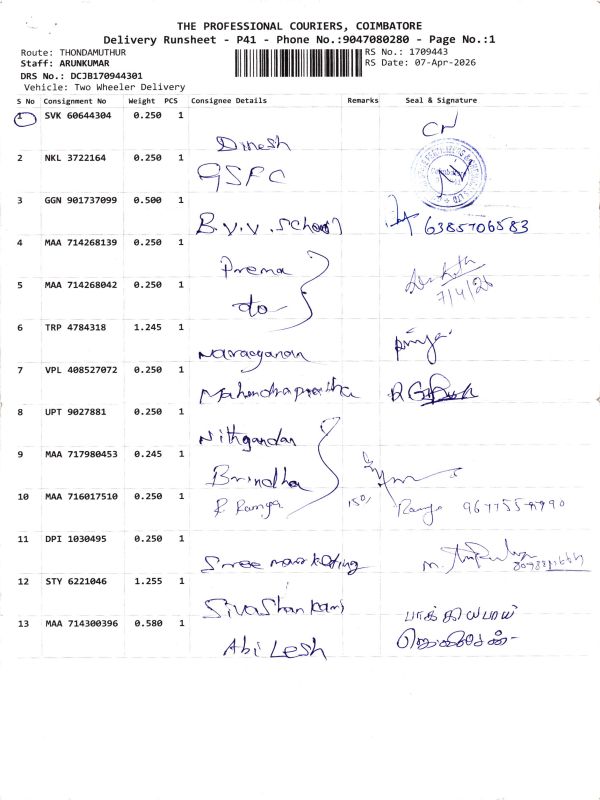 THE PROFESSIONAL COURIERS, COIMBATORE
Delivery Runsheet - P41 - Phone No.:9047080280 - Page No.:1
Route: THONDAMUTHUR RS No.: 1709443
Staff: ARUNKUMAR RS Date: 07-Apr-2026
DRS No.: DCJB170944301
Vehicle: Two Wheeler Delivery
S No Consignment No Weight PCS Consignee Details Remarks Seal & Signature
1 SVK 60644304 0.250 1
Dinesh
2 NKL 3722164 0.250 1
GSFC
3 GGN 901737099 0.500 1
B.V.V. School 6385706583
4 MAA 714268139 0.250 1
Prema
5 MAA 714268042 0.250 1
do 7/4/26
6 TRP 4784318 1.245 1
Narayanan Priya
7 VPL 408527072 0.250 1
8 UPT 9027881 0.250 1
Nithgandan
9 MAA 717980453 0.245 1
Brindha
10 MAA 716017510 0.250 1
R Ramya 150/ Ramya
11 DPI 1030495 0.250 1
Sree marketing
12 STY 6221046 1.255 1
Sivashankari பாக்கியபாய்
13 MAA 714300396 0.580 1
Abilesh